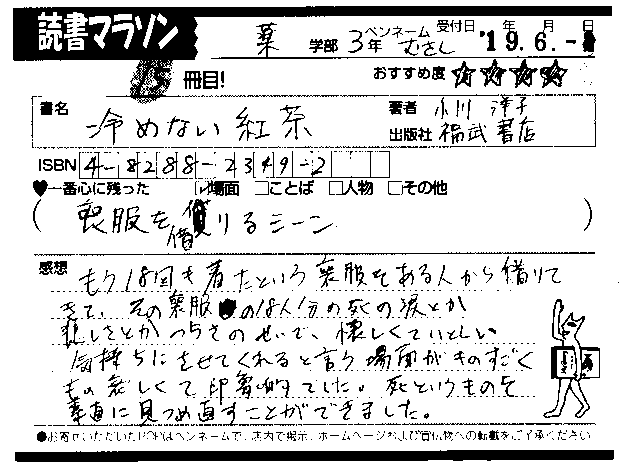 読書マラソン
薬 学部 3年 ペンネーム むさし 受付日 '19.6.- 年 月 日
15 冊目! おすすめ度 ☆☆☆☆
書名 冷めない紅茶 著者 小川 洋子
出版社 福武書店
ISBN 4-8288-2349-2
♥一番心に残った ☑場面 □ことば □人物 □その他
(喪服を借りるシーン)
感想 もう18回も着たという喪服をある人から借りて
きて、その喪服の18人分の死の涙とか
悲しさとかつらさのせいで、懐しくていとしい
気持ちにさせてくれると言う場面がものすごく
もの哀しくて印象的でした。死というものを
素直に見つめ直すことができました。
●お寄せいただいたPOPはペンネームで、店内で掲示、ホームページおよび宣伝物への転載をご了承ください